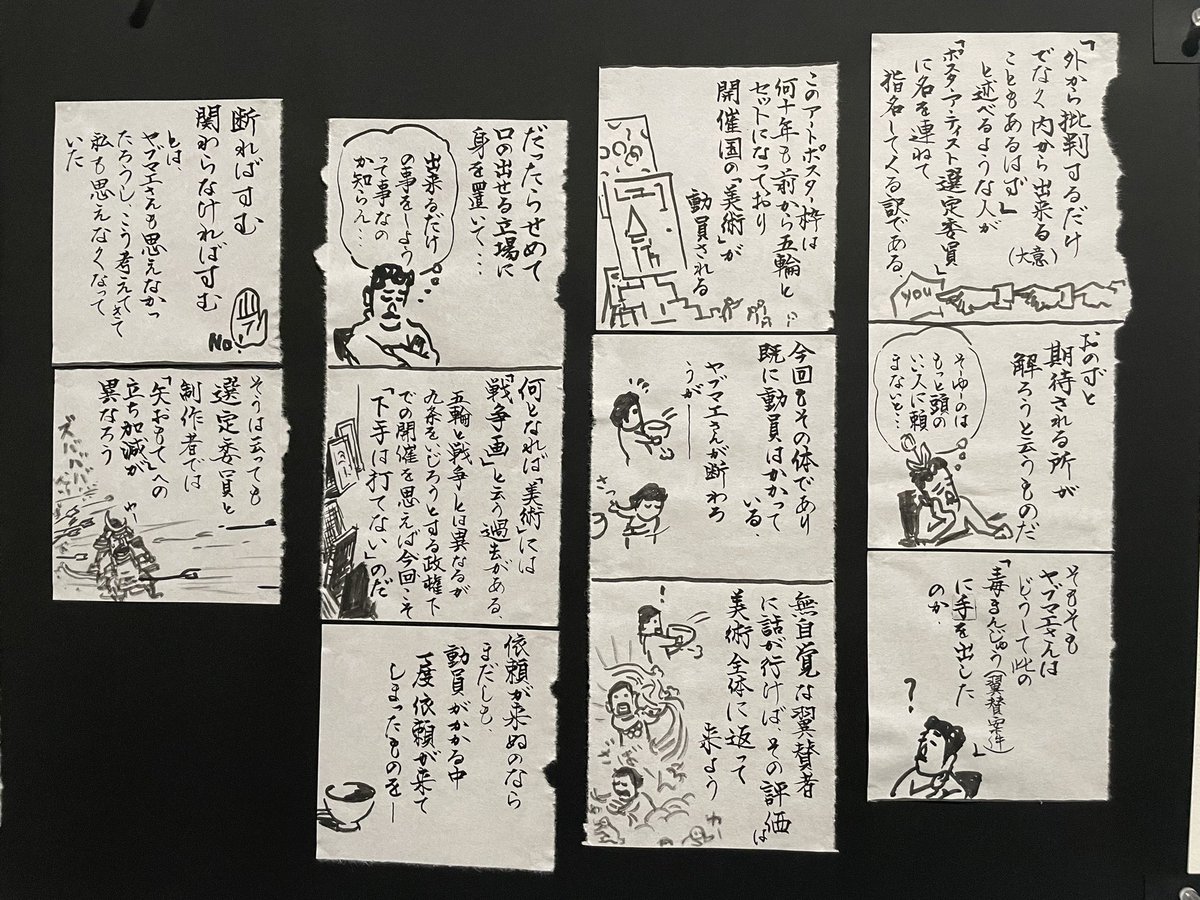 「外から批判するだけ
でなく内から出来る
こともあるはず」(大意)
と述べるような人が
「ポスターアーティスト選定委員」
に名を連ねて
指名してくる訳である。
YOU
おのずと
期待される所が
解ろうと云うものだ
そゆのは
もっと頭の
いい人に頼
まないと…
そもそも
ヤブマエさんは
どうして此の
「毒まんじゅう(翼賛案件)」
に手を出した
のか、
?
このアートポスター枠は
何十年も前から五輪と
セットになっており
開催国の「美術」が
動員される
今回もその体であり
既に動員はかかって
いる、
ヤブマエさんが断わろ
うが──
さっ
無自覚な翼賛者
に話が行けば、その評価は
美術全体に返って
来よう
!
ざば
わー
だったらせめて
口の出せる立場に
身を置いて…
出来るだけ
の事をしよう
って事なの
か知らん…
何となれば「美術」には
「戦争画」と云う過去がある、
五輪と戦争とは異なるが
九条をいじろうとする政権下
での開催を思えば今回こそ
「下手は打てない」のだ
依頼が来ぬのなら
まだしも、
動員がかかる中
一度依頼が来て
しまったものを─
断ればすむ
関わらなければすむ
とは、
ヤブマエさんも思えなかっ
たろうし、こう考えてきて
私も思えなくなって
いた
No!
そうは云っても
選定委員と
制作者では
「矢おもて」への
立ち加減が
異なろう
ズババババ
わー